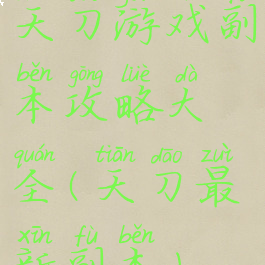 天刀游戏副
běn gōng lüè dà
本攻略大
quán tiān dāo zuì
全(天刀最
xīn fù běn
新副本)